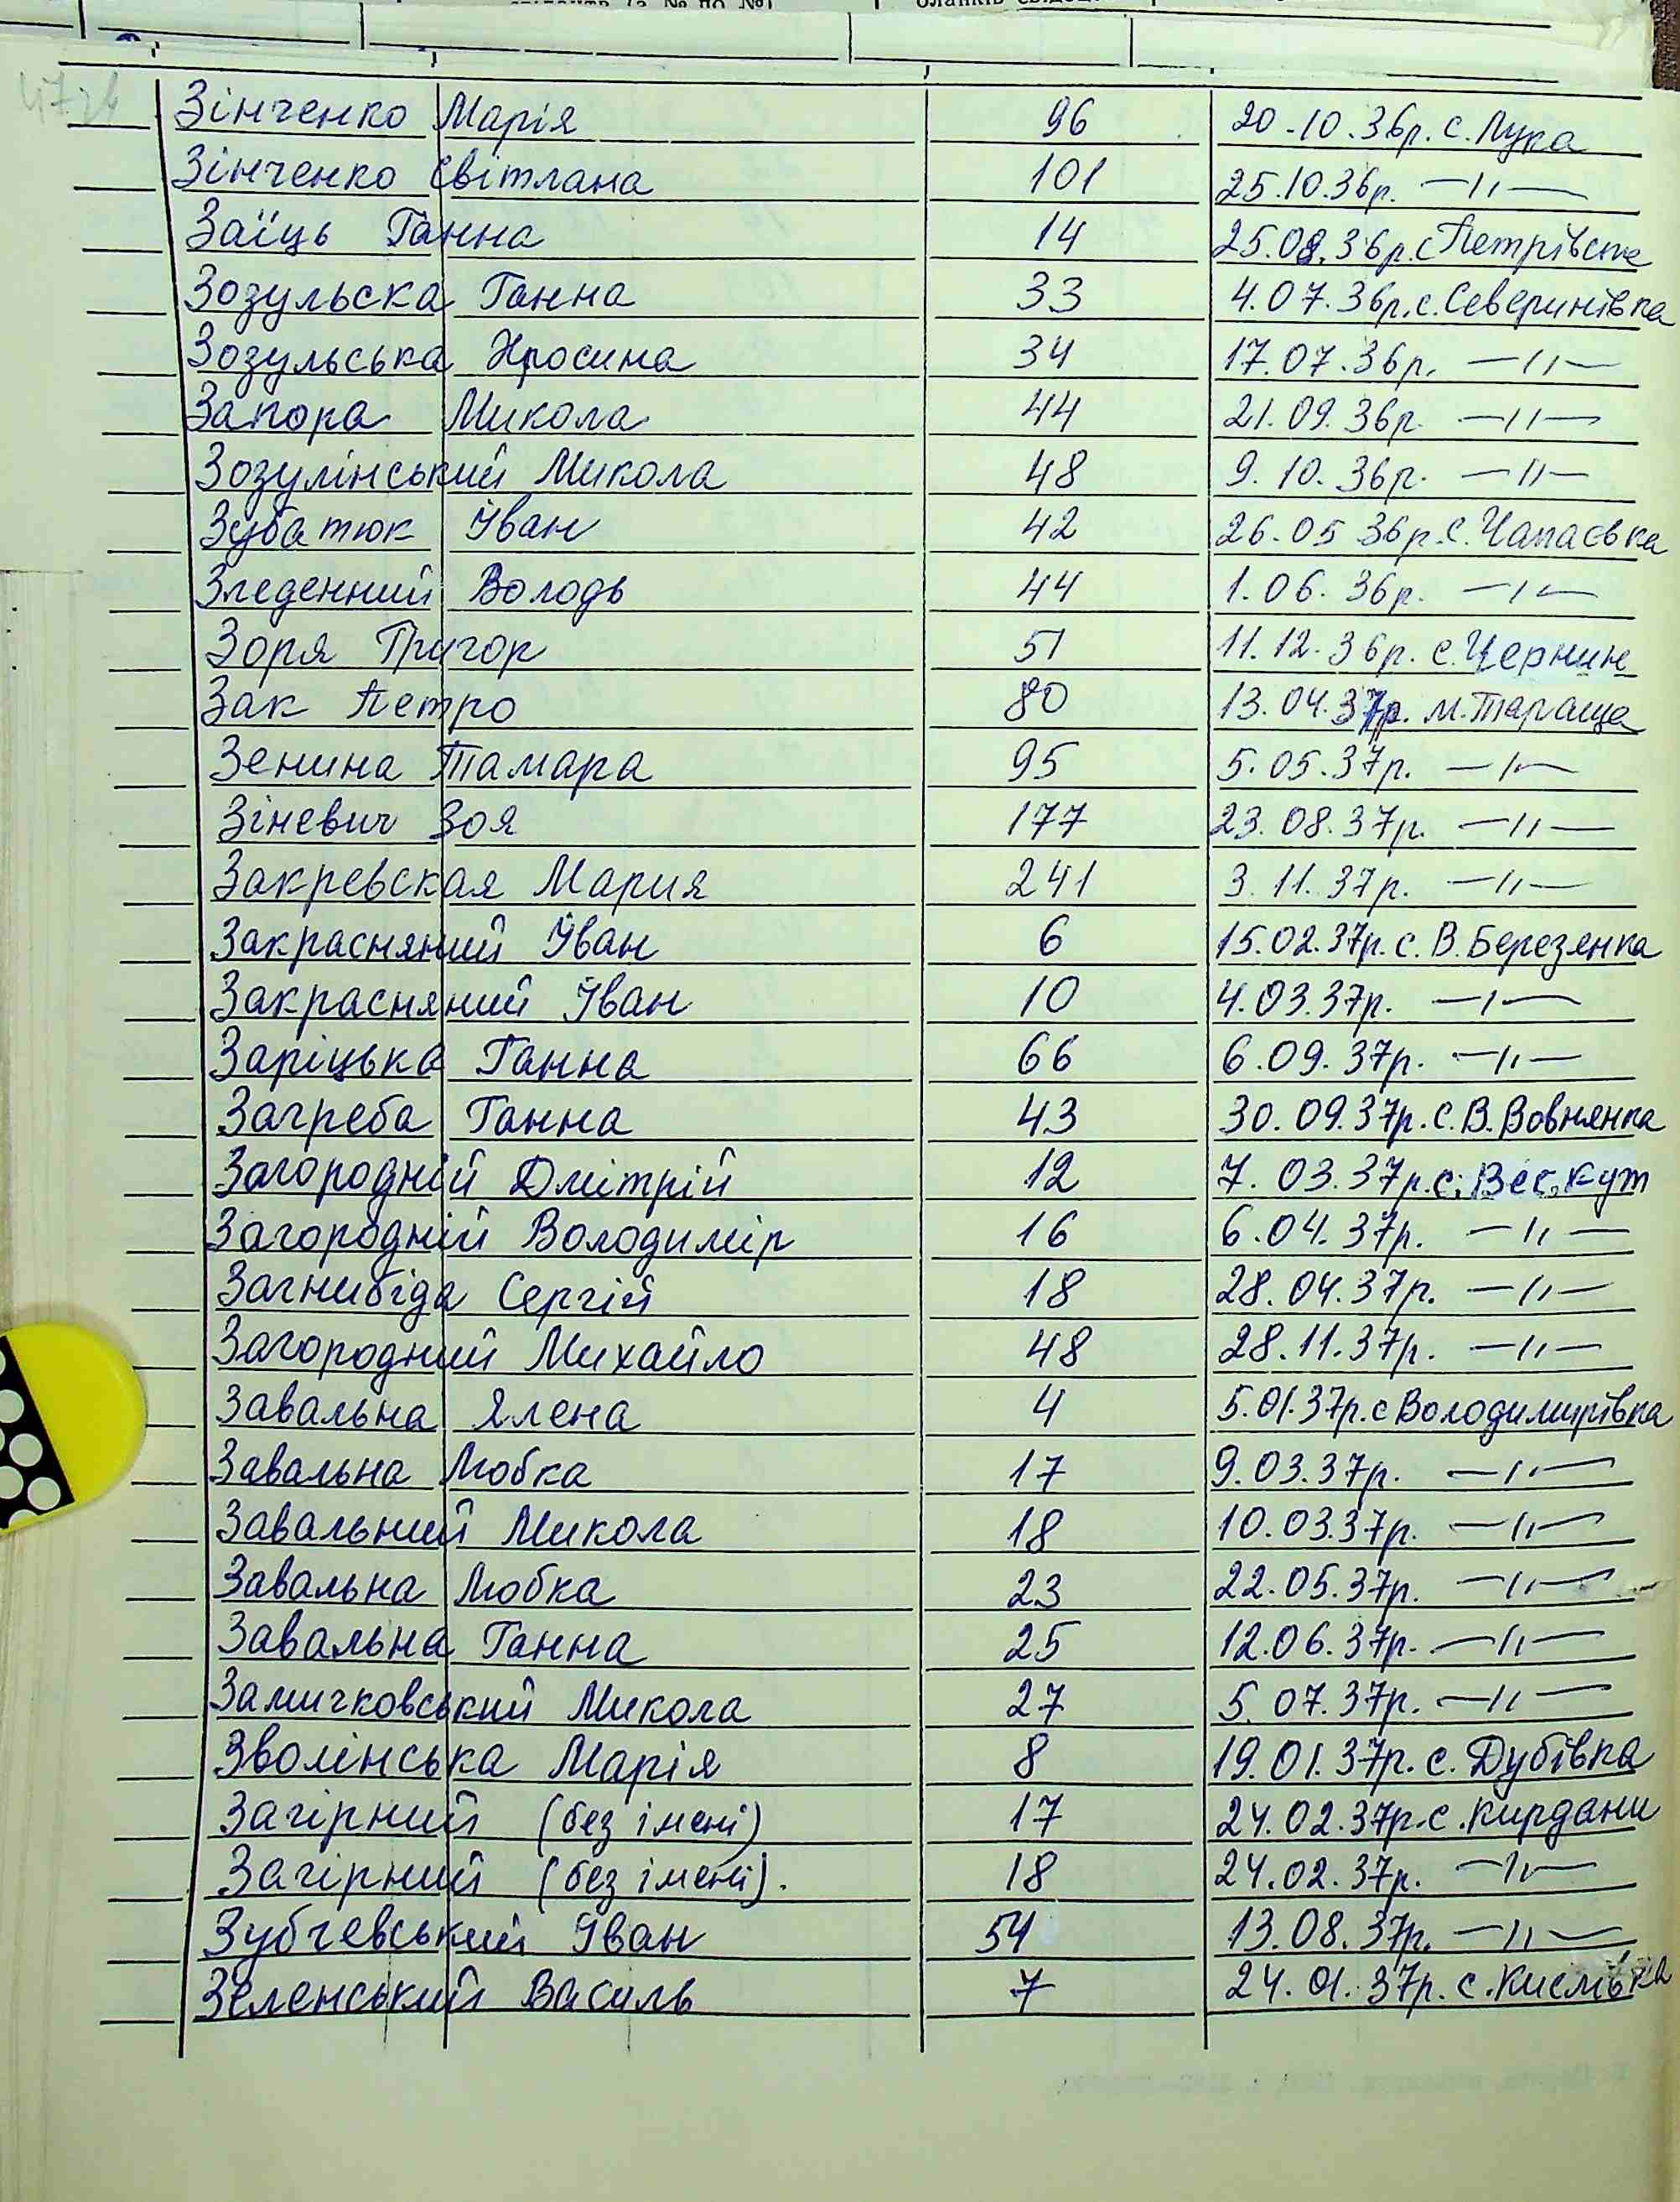 Зінченко Марія 96 20.10.36р. с. Лука
Зінченко Світлана 101 25.10.36р. —"—
Заїць Ганна 14 25.08.36р. с Петрівське
Зозульска Ганна 33 4.07.36р. с. Северинівка
Зозульська Яросина 34 17.07.36р. —"—
Запора Микола 44 21.09.36р. —"—
Зозулінський Микола 48 9.10.36р. —"—
Зубатюк Іван 42 26.05 36р. с. Чапаєвка
Зледенний Володь 44 1.06.36р. —"—
Зоря Григор 51 11.12.36р. с. Чернин
Зак Петро 80 13.04.37р. м. Тараща
Зенина Тамара 95 5.05.37р. —"—
Зіневич Зоя 177 23.08.37р. —"—
Закревская Мария 241 3.11.37р. —"—
Закрасняний Іван 6 15.02.37р. с. В. Березянка
Закрасняний Іван 10 4.03.37р. —"—
Заріцька Ганна 66 6.09.37р. —"—
Загреба Ганна 43 30.09.37р. с. В. Вовнянка
Загородній Дмітрій 12 7.03.37р. с. Вес. Кут
Загородній Володимір 16 6.04.37р. —"—
Загнибіда Сергій 18 28.04.37р. —"—
Загородний Михайло 48 28.11.37р. —"—
Завальна Ялена 4 5.01.37р. с Володимирівка
Завальна Любка 17 9.03.37р. —"—
Завальний Микола 18 10.03.37р. —"—
Завальна Любка 23 22.05.37р. —"—
Завальна Ганна 25 12.06.37р. —"—
Замичковський Микола 27 5.07.37р. —"—
Зволінська Марія 8 19.01.37р. с. Дубівка
Загірний (без імені) 17 24.02.37р. с. Кирдани
Загірний (без імені). 18 24.02.37р. —"—
Зубчевський Іван 54 13.08.37р. —"—
Зеленський Василь 7 24.01.37р. с. Кислівка